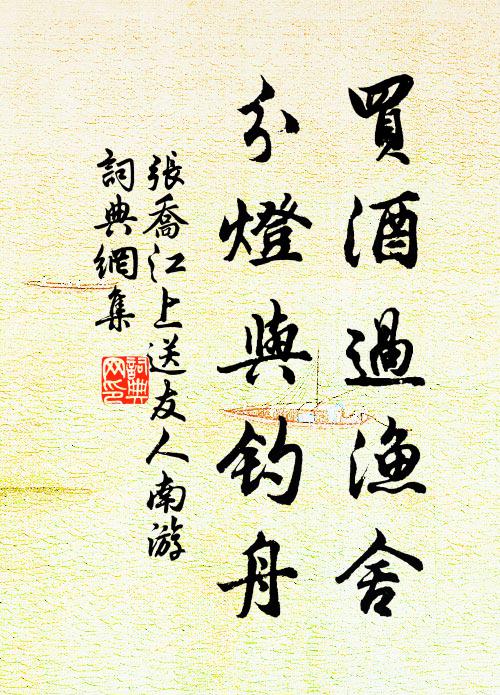 買酒過漁舍
分燈與釣舟
張喬江上送友人南游
詞典網集
詞典
网印